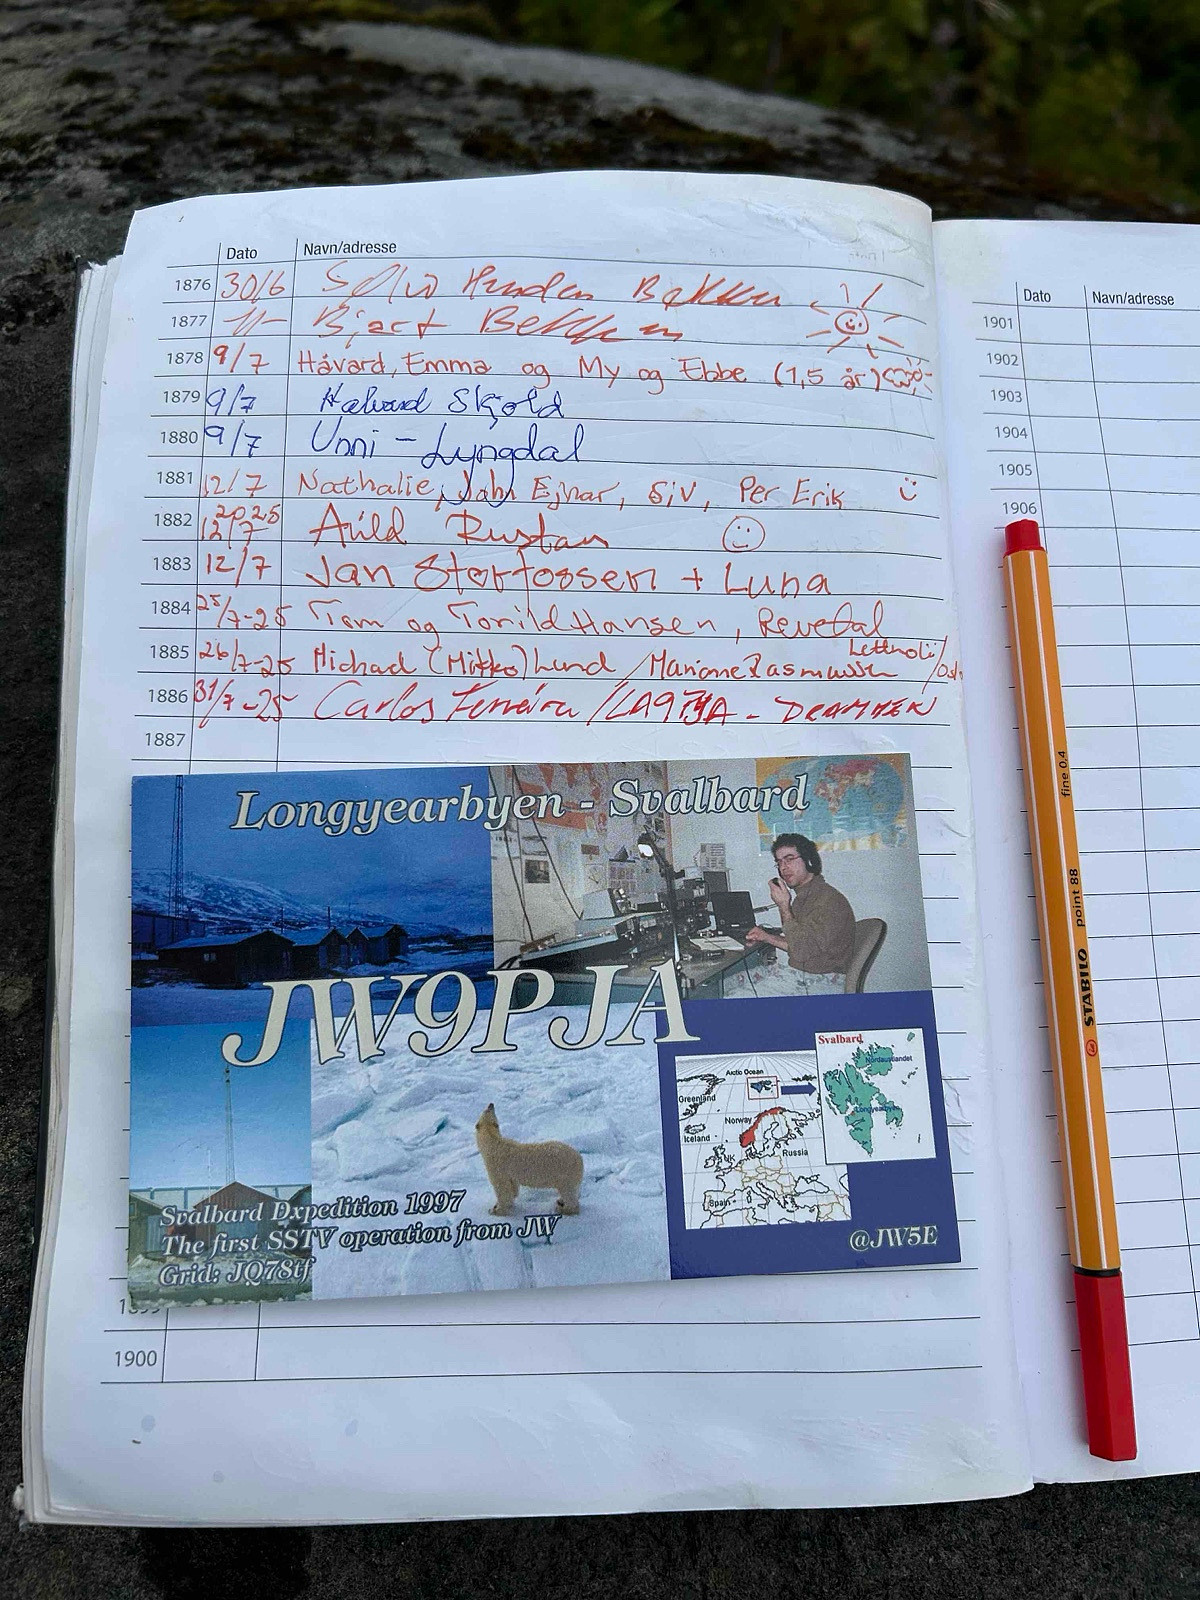 Dato Navn/adresse
1876 30/6
1877 -11- Bjart
1878 9/7 Håvard, Emma og My og Ebbe (1,5 år)
1879 9/7 Halvard Skjold
1880 9/7 Unni - Lyngdal
1881 12/7 Nathalie, John Ejnar, Siv, Per Erik
1882 2025 12/7 Rustan
1883 12/7 Jan Storfossen + Luna
1884 25/7-25 Tom og Torild Hansen, Revetal
1885 26/7-25 Michael (Mikko) Lund / Marianne Rasmussen
1886 31/7-25 Carlos Ferreira / LA9PJA - DRAMMEN
1887
Longyearbyen - Svalbard
JW9PJA
Svalbard
Nordaustlandet
Longyearbyen
Arctic Ocean
Greenland
Norway
Iceland
Russia
UK
Spain
Svalbard Dxpedition 1997
The first SSTV operation from JW
Grid: JQ78tf
@JW5E
1899
1900
Dato Navn/adresse
1901
1902
1903
1904
1905
1906
STABILO point 88 fine 0.4